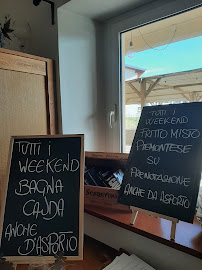 TUTTI I
WEEKEND
BAGNA
CAUDA
ANCHE
D'ASPORTO
TUTTI I
WEEKEND
FRITTO MISTO
PIEMONTESE
SU
PRENOTAZIONE
ANCHE DA ASPORTO